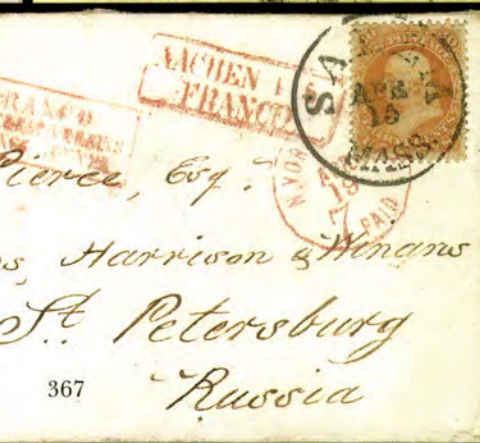 AACHEN
FRANCO
FRANCO
SA
APR
15
MASS.
N.YOR
19
7
PAID
Pierce, Esq.
Harrison & Winans
St. Petersburg
Russia
367